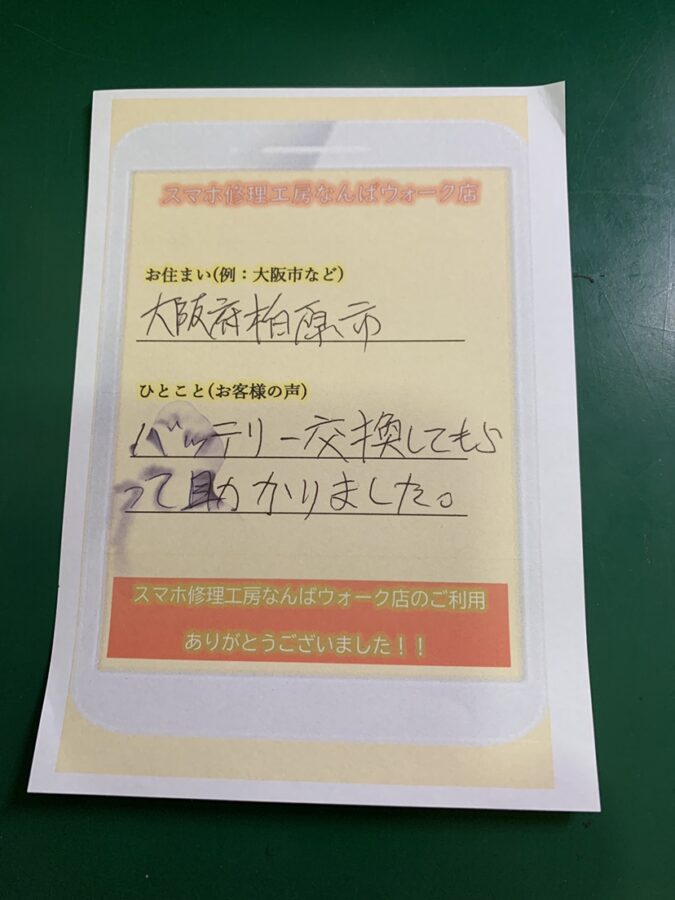 スマホ修理工房なんばウォーク店
お住まい(例：大阪市など)
大阪府柏原市
ひとこと(お客様の声)
バッテリー交換してもら
って助かりました。
スマホ修理工房なんばウォーク店のご利用
ありがとうございました！！